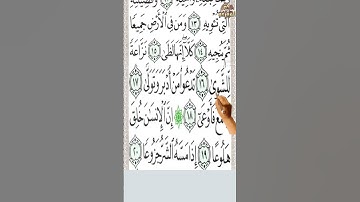 الَّتِي تُـْٔوِيهِ ١٣ وَمَن فِي الْأَرْضِ جَمِيعًا
ثُمَّ يُنجِيهِ ١٤ كَلَّا إِنَّهَا لَظَىٰ ١٥ نَزَّاعَةً
لِّلشَّوَىٰ ١٦ تَدْعُوا مَنْ أَدْبَرَ وَتَوَلَّىٰ ١٧
فَأَوْعَىٰ ١٨ إِنَّ الْإِنسَانَ خُلِقَ
هَلُوعًا ١٩ إِذَا مَسَّهُ الشَّرُّ جَزُوعًا ٢٠